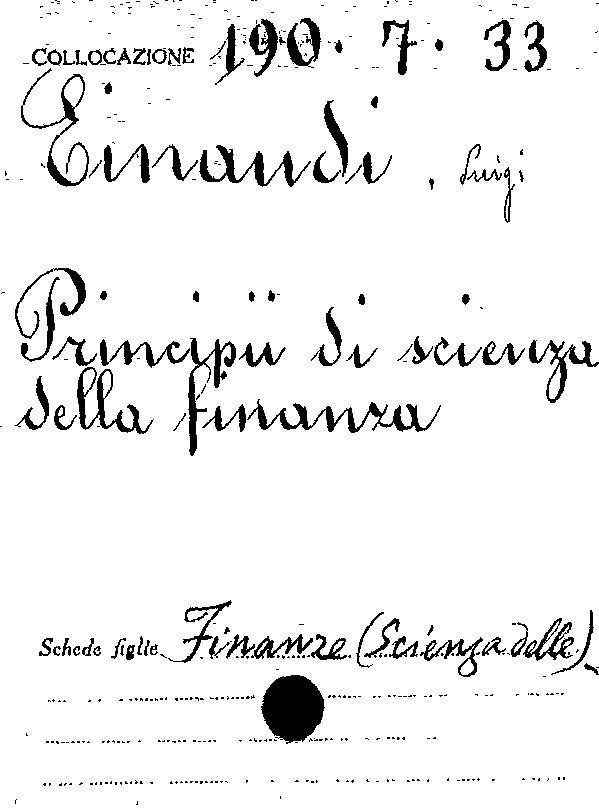 COLLOCAZIONE 190. 7. 33
Einaudi, Luigi
Principii di scienza
della finanza
Schede figlie Finanze (Scienza delle)